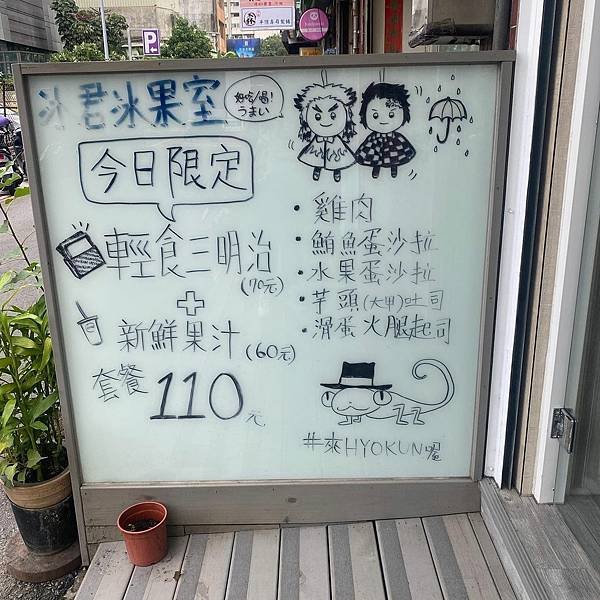 冰君冰果室
好吃/喝!
うまい
今日限定
輕食三明治
(70元)
+
新鮮果汁
(60元)
套餐 110元
・雞肉
・鮪魚蛋沙拉
・水果蛋沙拉
・芋頭(大甲)吐司
・滑蛋火腿起司
#來HYOKUN喔
P